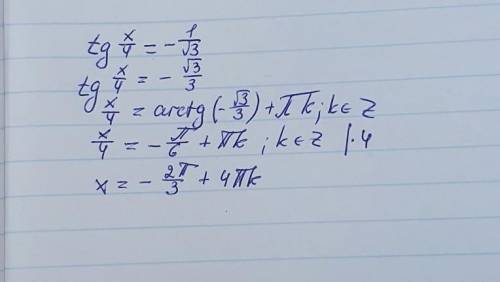 tg x/4 = - 1/√3
tg x/4 = - √3/3
x/4 = arctg (- √3/3) + πk; k ∈ Z
x/4 = - π/6 + πk ; k ∈ Z | · 4
x = - 2π/3 + 4πk